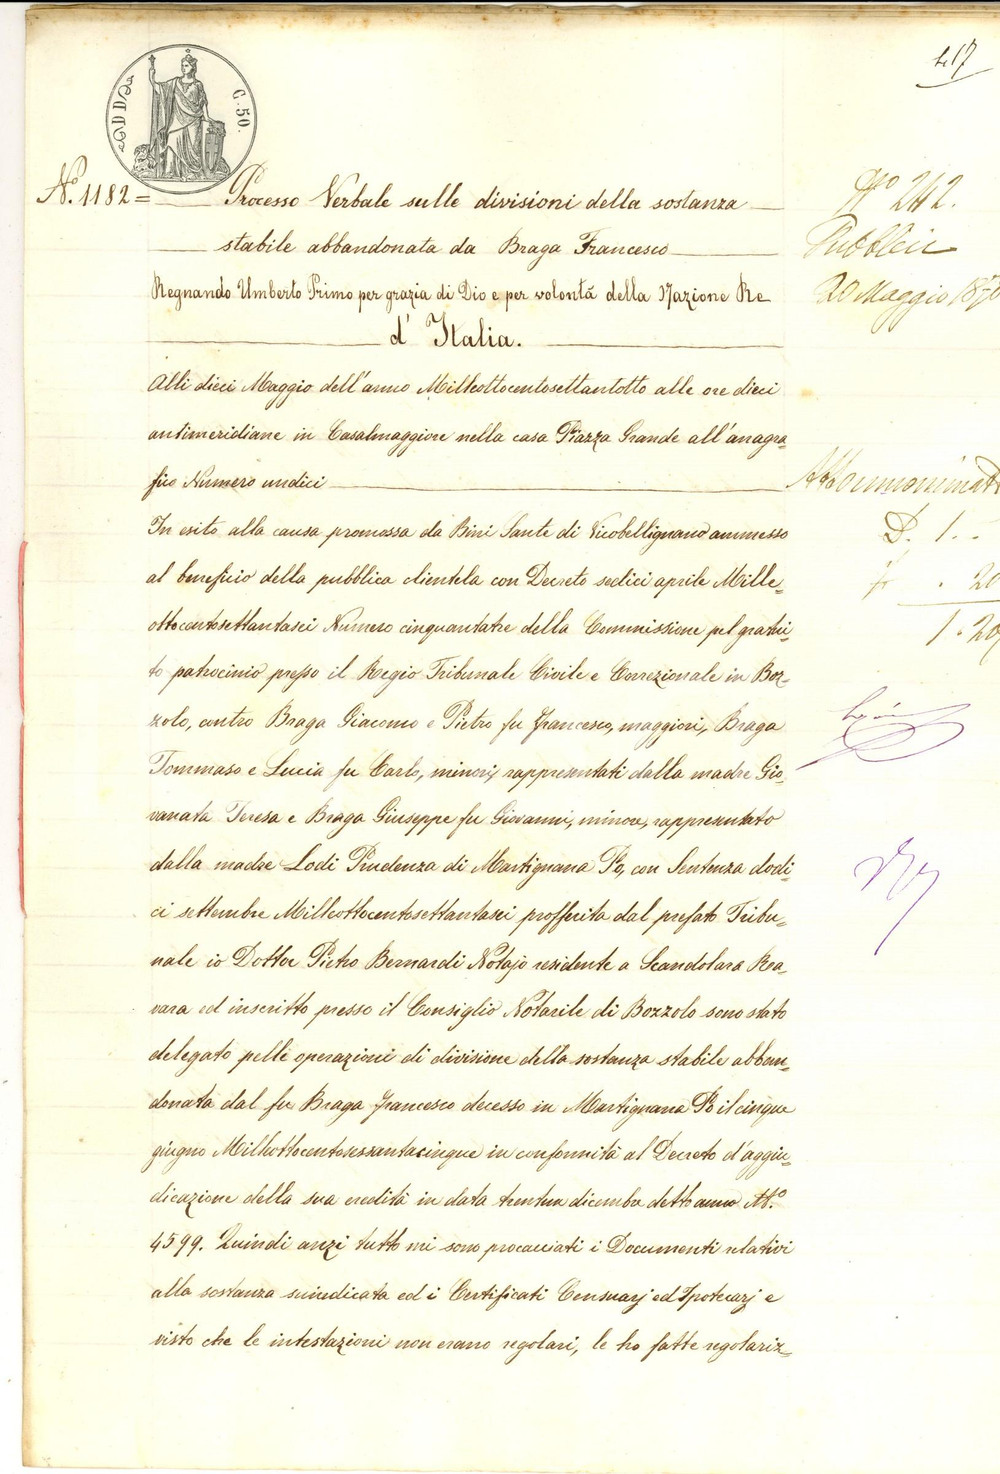 417
C. 50.
N.º 1182 = Processo Verbale sulle divisioni della sostanza
stabile abbandonata da Braga Francesco
Regnando Umberto Primo per grazia di Dio e per volontà della Nazione Re
d' Italia.
Alli dieci Maggio dell'anno Milleottocentosettantotto alle ore dieci
antimeridiane in Casalmaggiore nella casa Piazza Grande all'anagra-
fico Numero undici
In esito alla causa promossa da Bini Sante di Vicobellignano ammesso
al beneficio della pubblica clientela con Decreto sedici aprile Mille-
ottocentosettantasei Numero cinquantatre della Commissione pel gratui-
to patrocinio presso il Regio Tribunale Civile e Correzionale in Boz-
zolo, contro Braga Giacomo e Pietro fu Francesco, maggiori, Braga
Tommaso e Lucia fu Carlo, minori, rappresentati dalla madre Gio-
vanata Teresa e Braga Giuseppe fu Giovanni, minore, rappresentato
dalla madre Lodi Prudenza di Martignana Po, con Sentenza dodi-
ci settembre Milleottocentosettantasei profferita dal prefato Tribu-
nale io Dottor Pietro Bernardi Notajo residente a Scandolara Ra-
vara ed inscritto presso il Consiglio Notarile di Bozzolo sono stato
delegato pelle operazioni di divisione della sostanza stabile abban-
donata dal fu Braga Francesco decesso in Martignana Po il cinque
giugno Milleottocentosessantacinque in conformità al Decreto d'aggiu-
dicazione della sua eredità in data trentun dicembre detto anno N.º
4599. Quindi anzi tutto mi sono procacciati i Documenti relativi
alla sostanza suindicata ed i Certificati Censuarj ed Ipotecarj e
visto che le intestazioni non erano regolari, le ho fatte regolariz-
Nº 242.
Pubblici
20 Maggio 187
D. 1. -
. 20
1. 20